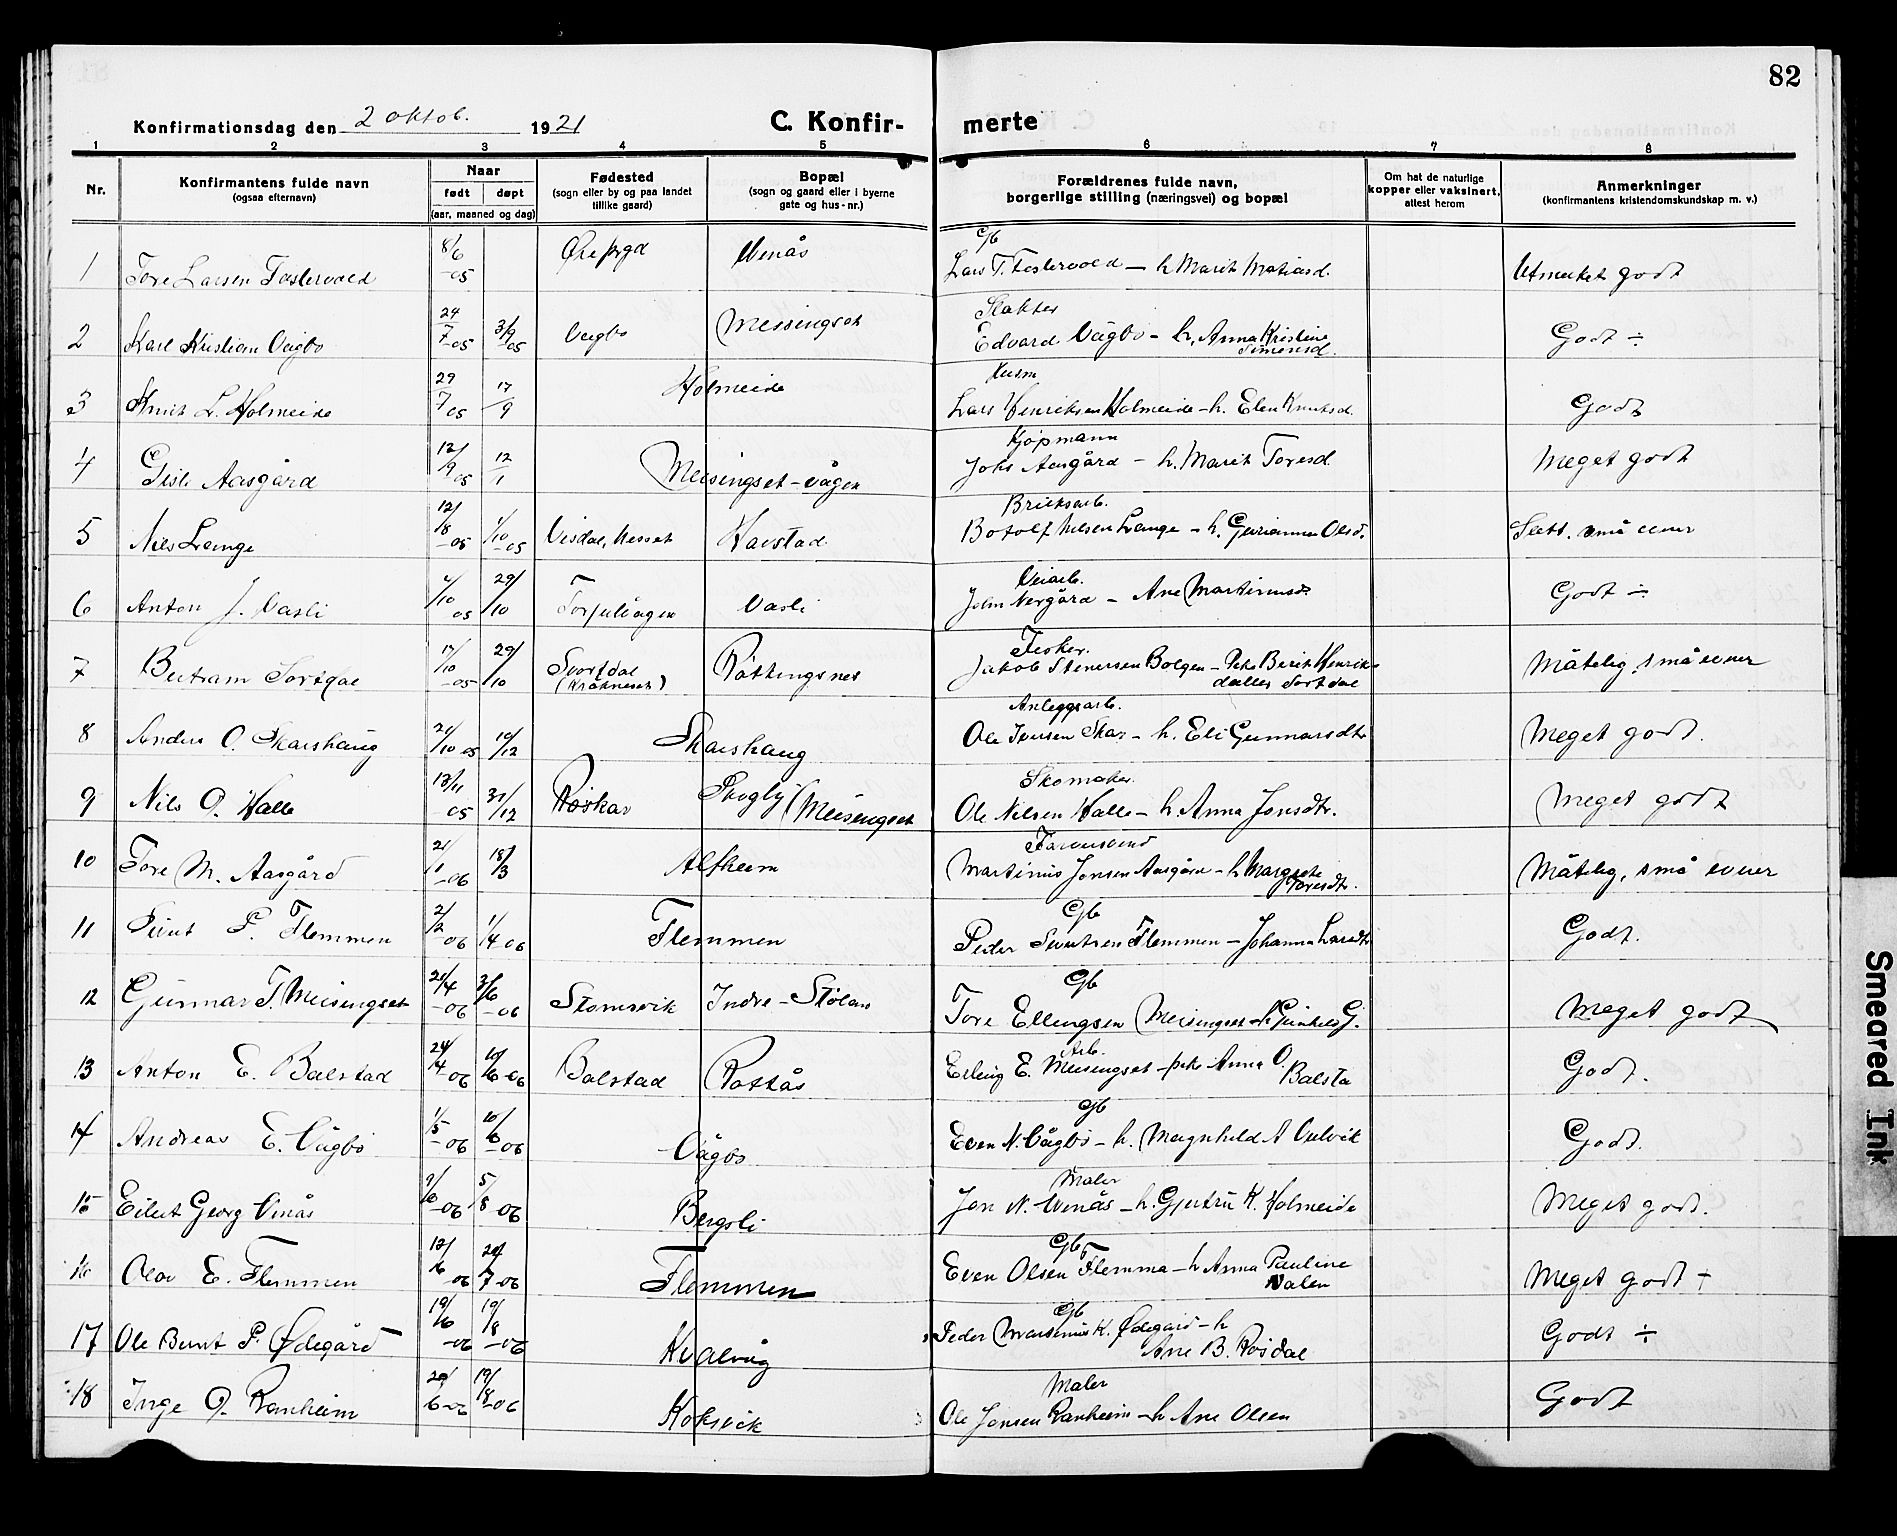 82
Konfirmationsdag den 2 oktob. 1921
C. Konfir- merte
1 2 3 4 5 6 7 8
Nr.
Konfirmantens fulde navn
(ogsaa efternavn)
Naar
født døpt
(aar, maaned og dag)
Fødested
(sogn eller by og paa landet
tillike gaard)
Bopæl
(sogn og gaard eller i byerne
gate og hus-nr.)
Forældrenes fulde navn,
borgerlige stilling (næringsvei) og bopæl
Om hat de naturlige
kopper eller vaksinert,
attest herom
Anmerkninger
(konfirmantens kristendomskundskap m. v.)
Gb
1 Tore Larsen Fostervold 8/6 -05 Øre prgd Venås Lars T. Fostervold - h Marit Matiasd. Utmerket godt
Slakter
2 Karl Kristian Vågbø 24/7 -05 3/9 -05 Vågbø Meisingset Edvard Vågbø - h. Anna Kristine Simensd. Godt ÷
Husm
3 Knut L. Holmeide 29/7 05 17/9 Holmeide Lars Henriksen Holmeide - h. Elen Knutsd. Godt
Kjøpmann
4 Gisle Aasgård 12/9 05 12/1 Meisingset-vågen Johs Aasgård - h. Marit Toresd. Meget godt
Bruksarb.
5 Nils Lange 12/8 -05 1/10 -05 Visdal, Nesset Harstad Botolf Nilsen Lange - h. Gurianna Olsd. Slett. små evner
Veiarb.
6 Anton J. Vasli /10 05 29/10 Torjulvågen Vasli John Nergård - Ane Martinusd. Godt ÷
Fisker.
7 Bertram Sortdal 17/10 -05 29/10 Svortdal (Kråkneset) Røttingsnes Jakob Stenersen Bolgen - Pike Berit Henriks- datter Sortdal Måtelig, små evner
Anleggsarb.
8 Anders O. Skarshaug 21/10 05 10/12 Skarshaug Ole Iversen Skar - h. Eli Gunnarsdtr Meget godt.
Skomaker
9 Nils O. Halle 13/11 05 31/12 Røskar Skogly (Meisingset Ole Nilsen Halle - h. Anna Jonsdtr. Meget godt
10 Tore M. Aasgård 21/1 -06 18/3 Alfheim Martinus Jonsen Aasgård - h Margrete Toresdtr. Måtelig, små evner
Gb
11 Sivert P. Flemmen 2/2 -06 1/4 -06 Flemmen Peder Sivertsen Flemmen - Johanna Larsdtr Godt.
Gb
12 Gunnar T. Meisingset 21/4 -06 3/6 -06 Stomsvik Indre-Stølan Tore Ellingsen Meisingset - h Gunhild G. Meget godt
Arb.
13 Anton E. Balstad 24/4 06 10/6 -06 Balstad Røttås Erling E. Meisingset - pike Anna O. Balsta Godt.
Gb
14 Andreas E. Vågbø 1/5 -06 10/6 -06 Vågbø Even N. Vågbø - h. Magnhild A Ulvik Godt.
Maler
15 Eilert Georg Vinås /6 -06 5/8 -06 Bergsli Jon N. Venås - h. Gjertru K. Holmeide Meget godt.
Gb
16 Olav E. Flemmen 12/6 -06 /7 -06 Flemmen Even Olsen Flemma - h Anna Pauline Valen Meget godt +
Gb
17 Ole Bernt P. Ødegård 19/6 -06 19/8 -06 Kvalvåg Peder Marsenius K. Ødegård - h Ane B. Røsdal Godt ÷
Maler
18 Inge O. Ranheim 20/6 -06 19/8 -06 Koksvik Ole Jonsen Ranheim - h Ane Olsen Godt
Smeared Ink